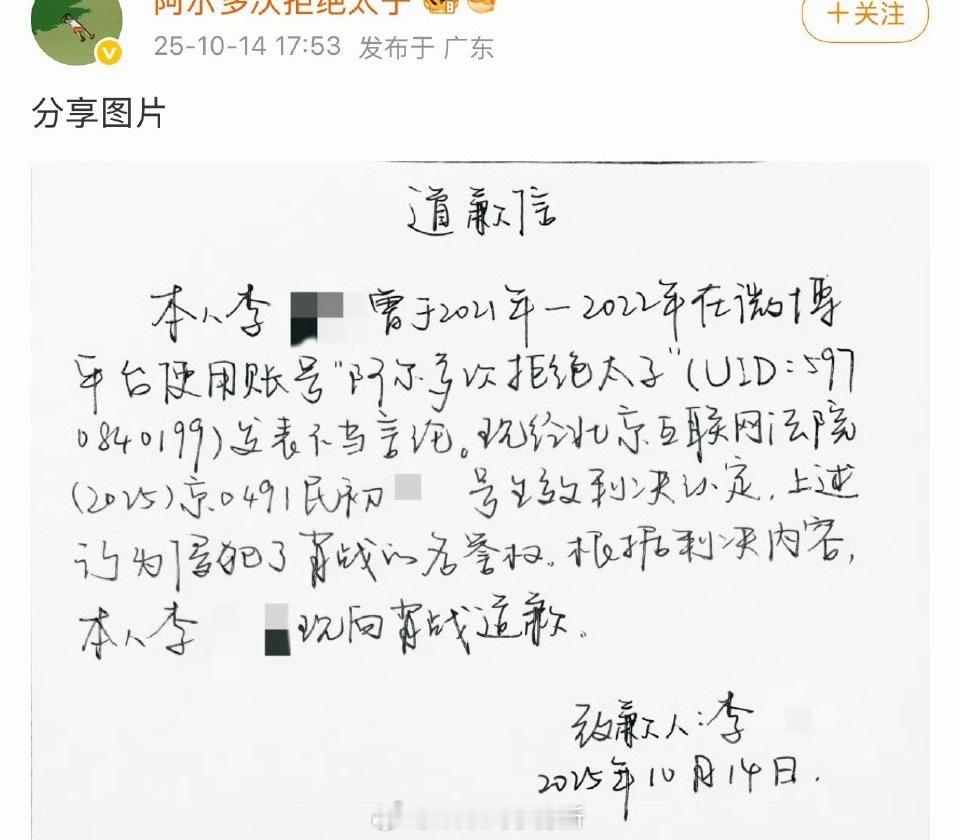 阿尔多次拒绝太子
25-10-14 17:53 发布于 广东
+关注
分享图片
道歉信
本人李 曾于2021年-2022年在微博
平台使用账号"阿尔多次拒绝太子"(UID:597
0840199)发表不当言论。现经北京互联网法院
(2025)京0491民初 号生效判决认定,上述
行为侵犯了肖战的名誉权。根据判决内容,
本人李 现向肖战道歉。
致歉人:李
2025年10月14日.